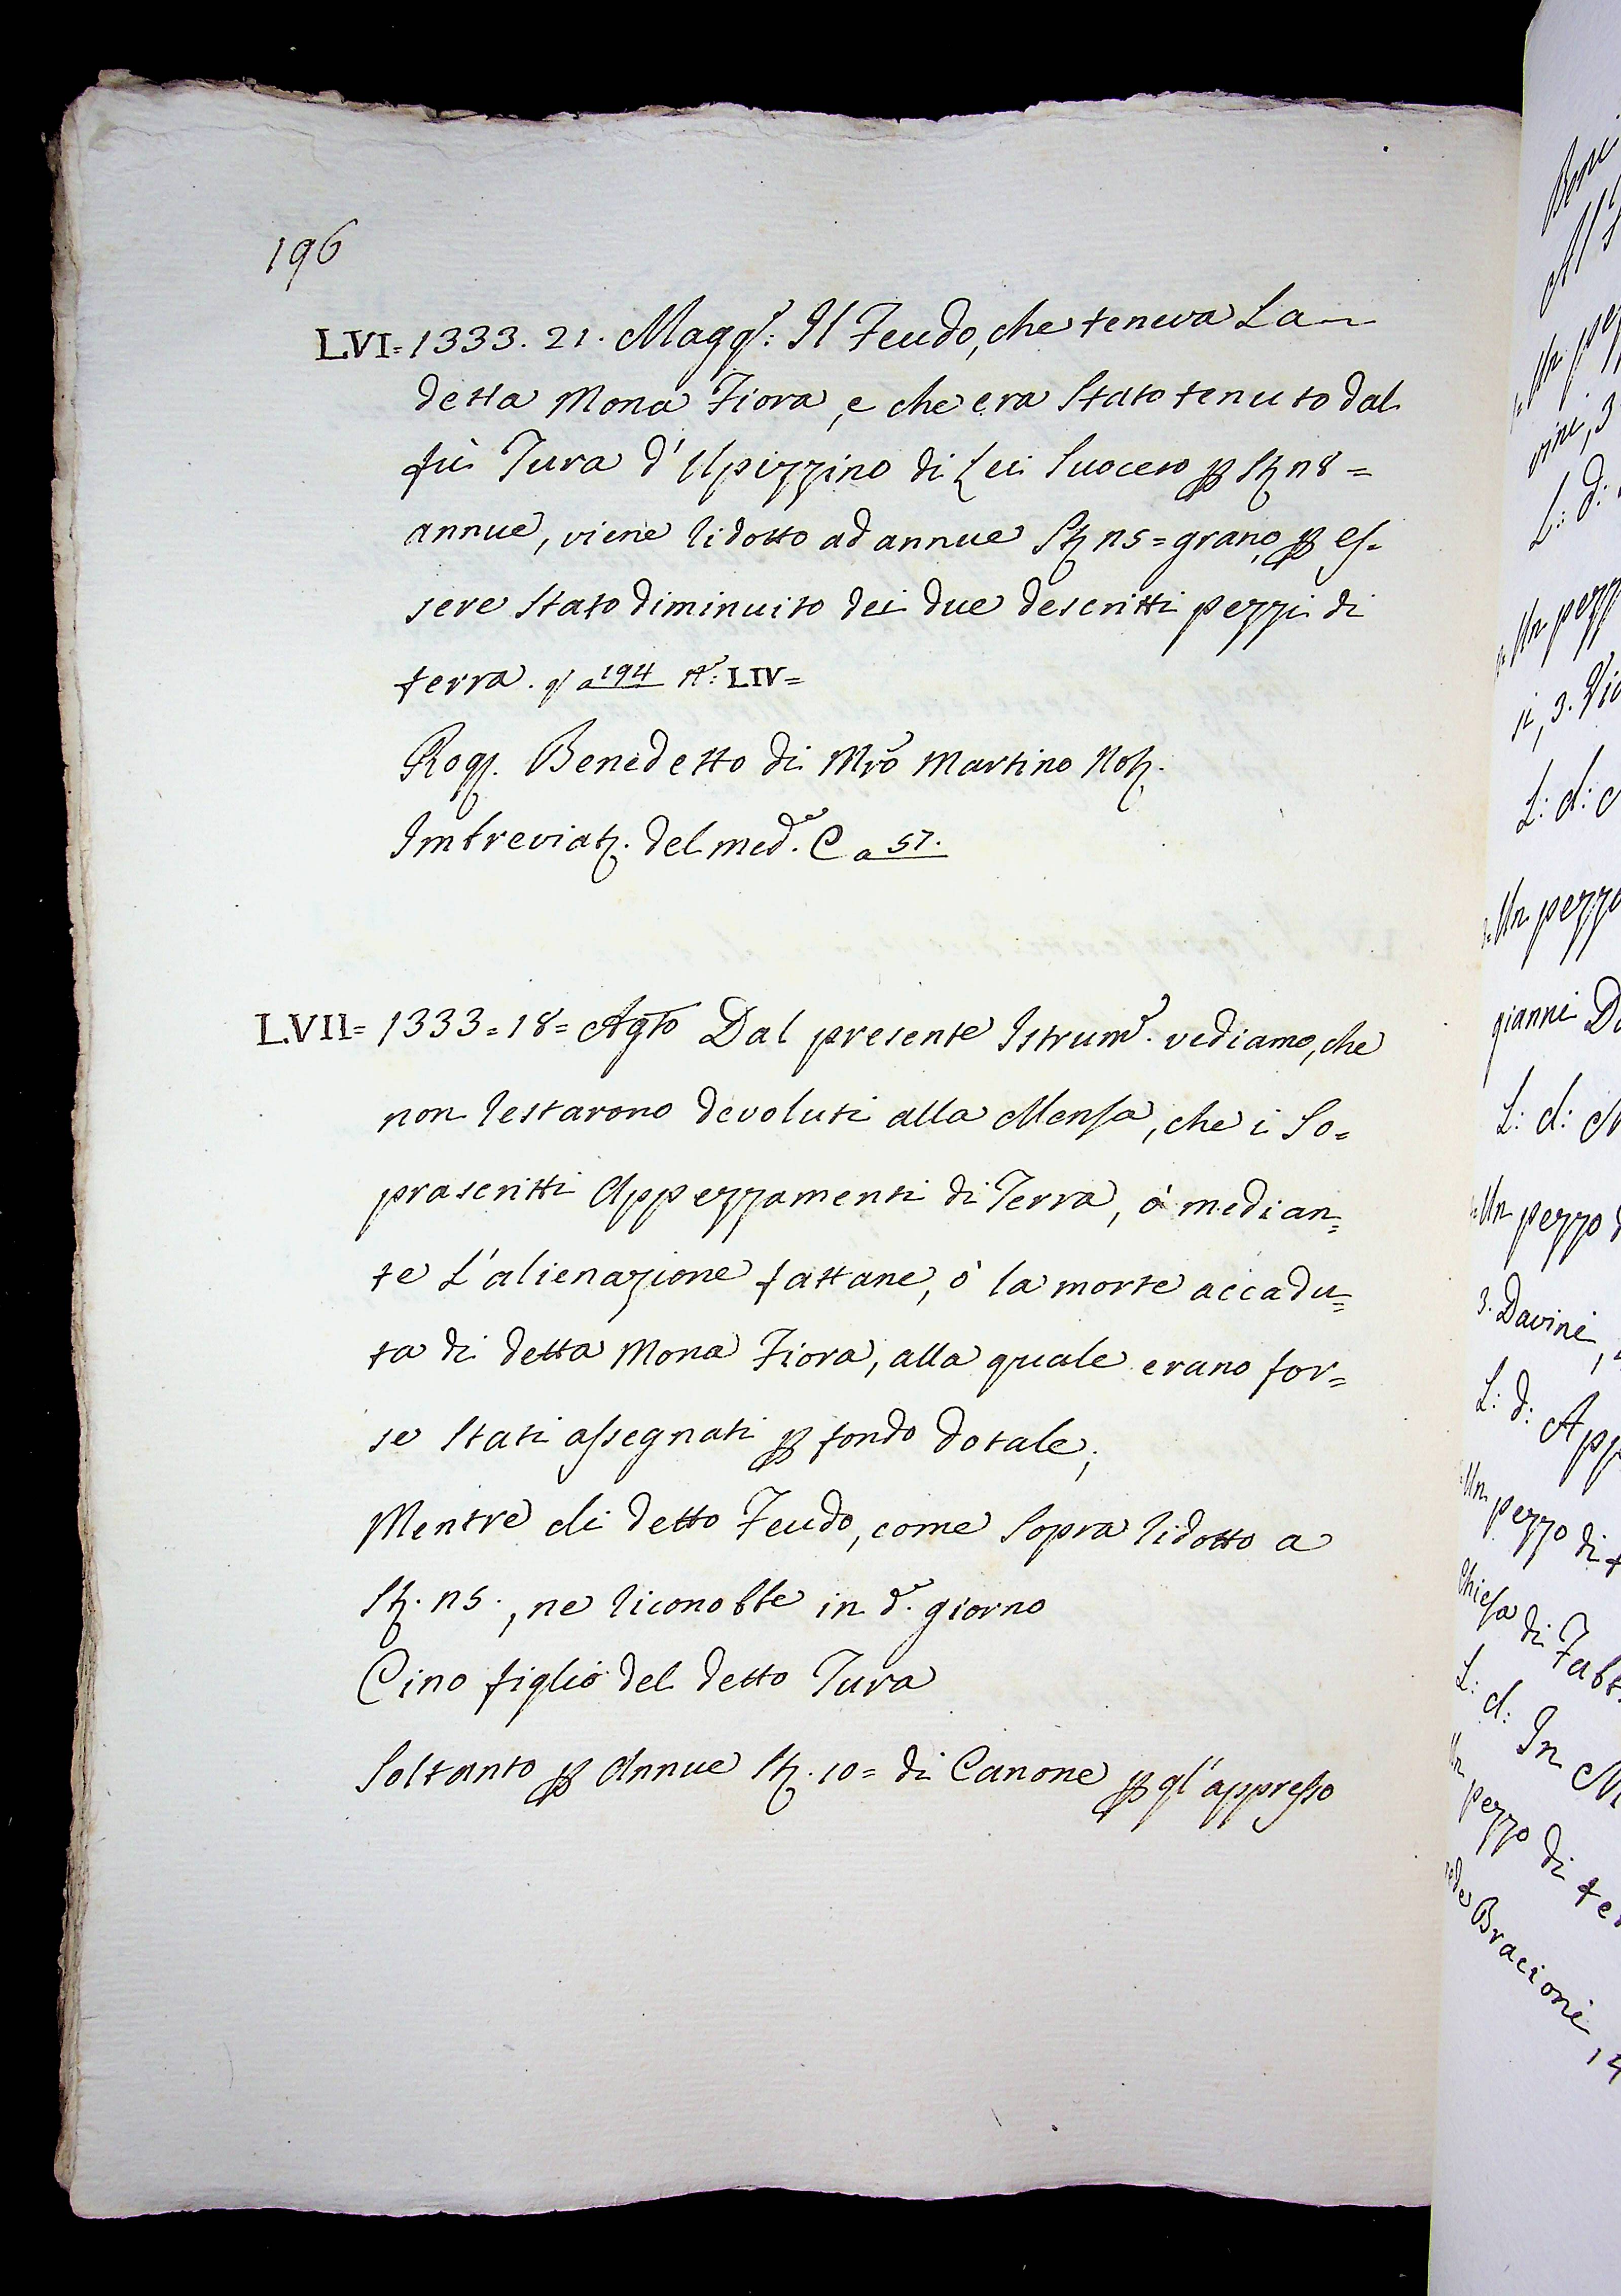 196
LVI= 1333. 21. Magg.º: Il Feudo, che teneva La
detta Mona Fiora, e che era Stato tenuto dal
fù Tura d'Upizzino di Lei Suocero per St n8=
annue, viene ridotto ad annue St n5= grano, per es=
sere stato diminuito dei due descritti pezzi di
terra. qº a 194 Nº: LIV=
Rogº. Benedetto di Mrõ Martino Not.
Imbreviat. del medº. C a 57.
LVII= 1333=18= Agto Dal presente Istrumº. vediamo, che
non restarono devoluti alla Mensa, che i So=
prascritti Appezzamenti di Terra, ò median=
te L'alienazione fattane, ò la morte accadu=
ta di detta Mona Fiora, alla quale erano for=
se Stati assegnati per fondo dotale;
Mentre di detto Feudo, come Sopra ridotto a
St. n5., ne riconobbe in dº. giorno
Cino figlio del detto Tura
Soltanto per Annue St. 10= di Canone per gl'appresso
Un pezzo
gianni
L: d:
Un pezzo
3. Davini,
L: d: App
Un pezzo di
Chiesa di Fabb
L: d: In
pezzo di te
Bracioni,